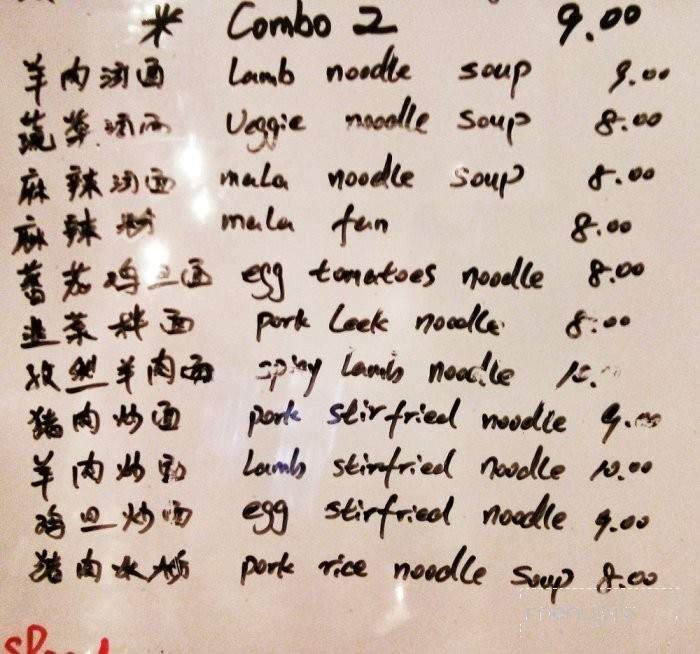 * Combo 2 9.00
羊肉汤面 Lamb noodle soup 9.00
蔬菜汤面 Veggie noodle soup 8.00
麻辣汤面 mala noodle soup 8.00
麻辣粉 mala fun 8.00
蕃茄鸡旦面 egg tomatoes noodle 8.00
韭菜拌面 pork Leek noodle 8.00
孜然羊肉面 spicy lamb noodle 10.
猪肉炒面 pork stirfried noodle 9.00
羊肉炒面 Lamb stirfried noodle 10.00
鸡旦炒面 egg stirfried noodle 9.00
猪肉米粉 pork rice noodle soup 8.00